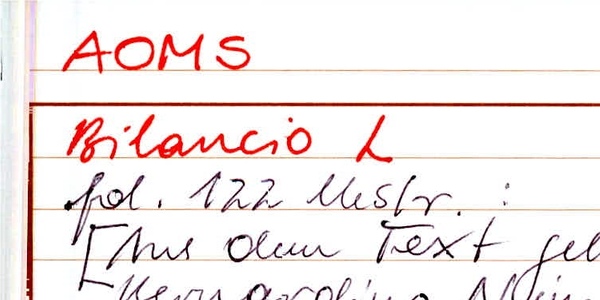 AOMS
Bilancio L
fol. 122 Mestr. :
[Aus dem Text gel